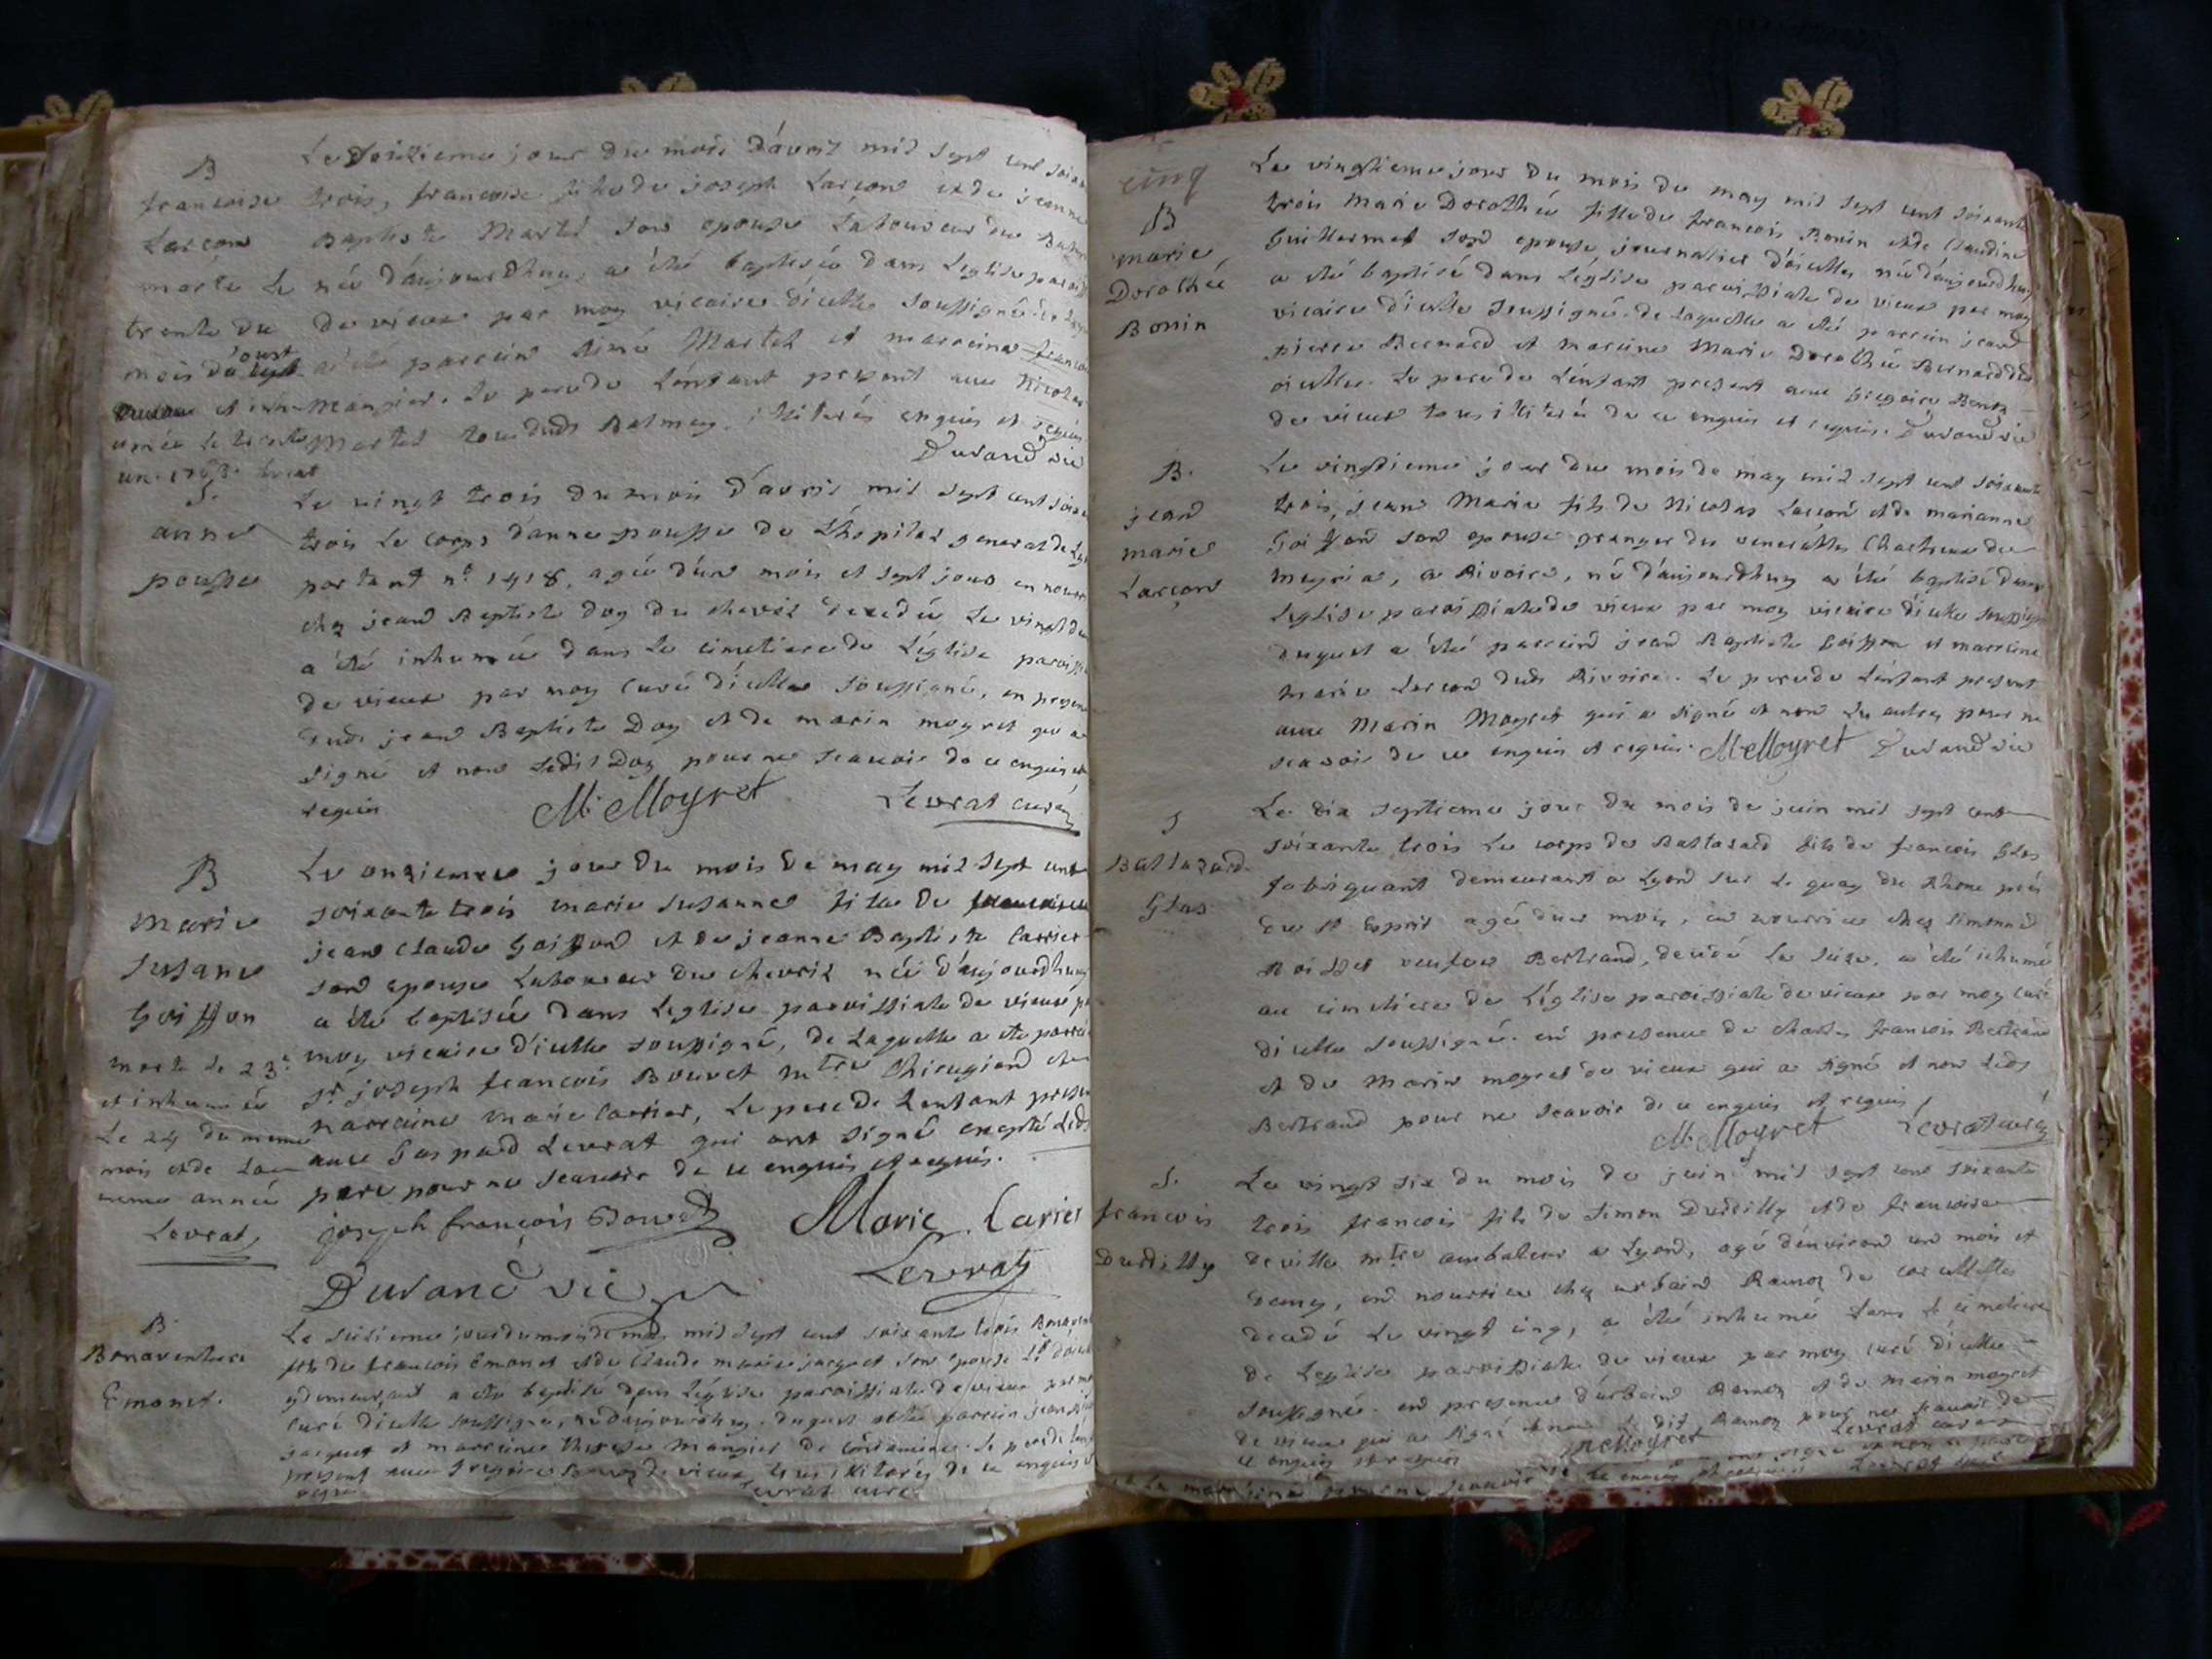 B
francoise
Larcon
morte le
trente du
mois d'aoust
un. 1763. Levrat
Le seizieme jour du mois d'avril mil sept cent soixan
trois, francoise fille de joseph Larcon et de jeanne
Baptiste Martel son epouse Laboureur du Balm
née d'aujourdhuy, a été baptisée dans Leglise paroiss
de vieux par moy vicaire d'icelle soussigné. de Laq
a été parrein Aimé Martel et marreine francoi
Mangier. Le pere de L'enfant present avec Nicolas
Martel tous dudt Balmay. illiterés enquis et requis
Durand vic
S.
anne
pousse
Le vingt trois du mois d'avril mil sept cent soixa
trois Le corps d'anne pousse de L'hopital general de Ly
portant n.o 1418, agée d'un mois et sept jours en nourr
chez jean Baptiste Doy du chevril decedée Le vingt deu
a été inhumée dans Le cimetiere de L'église paroissi
de vieux par moy curé d'icelle soussigné, en presen
dudt jean Baptiste Doy et de marin moyret qui a
signé et non Ledit Doy pour ne scavoir de ce enquis et
requis
M. Moyret Levrat curé
B
Marie
Susane
Goiffon
morte le 23e
et inhumée
Le 24 du meme
mois et de La
meme année
Levrat
Le onzieme jour du mois de may mil sept cent
soixante trois marie Susanne fille de
jean claude Goiffond et de jeanne Baptiste Carrier
sond epouse Laboureur du chevril née d'aujourdhuy
a été baptisée dans Leglise paroissiale de vieux p
moy vicaire d'icelle soussigné, de Laquelle a été parrei
Sr joseph francois Bouvet mtre Chirugiend et
marreine marie Carrier, Le pere de L'enfant presen
avec Gaspard Levrat qui ont signé excepté Led
pere pour ne scavoir de ce enquis et requis.
joseph françois Bouvet Marie Carrier
Levrat
Durand vic
B.
Bonaventure
Emonet.
Le seizieme jour du mois de may mil sept cent soixante trois Bonavent
fils de francois Emonet et de Claude marie jacquet son epouse
y demeurant a été baptisé dans Léglise paroissiale de vieux par mo
curé d'icelle soussigné, né d'aujourdhuy. duquel a été parrein jean
jacquet et marreine therese Mangier de condamine. Le pere de L'enf
present avec gregoire de vieux, tous illiterés de ce enquis et
requis Levrat curé
cinq
B
marie
Dorothée
Bonin
Le vingtieme jour du mois de may mil sept cent soixante
trois Marie Dorothée fille de francois Bonin et de Claudine
Guillermet sond epouse, journalier d'oicelles née d'aujourdhuy
a été baptisée dans L'église paroissiale de vieux par moy
vicaire d'icelle soussigné. de Laquelle a été parrein jeand
pierre Bernard et marreine Marie Dorothée Bernard du
oicelle. Le pere de L'enfant present avec Gregoire
de vieux tous illiterés de ce enquis et requis. Durand vic
B.
jeand
marie
Larçon
Le vingtieme jour du mois de may mil sept cent soixante
trois, jeand Marie fils de Nicolas Larcon et de marianne
Goiffond sond epouse granger des venerables Chartreux de
Meyria, a Rivoire, né d'aujourdhuy a été baptisé dans
Leglise paroissiale de vieux par moy vicaire d'icelle soussign
duquel a été parreind jeand Baptiste Goiffon et marreine
Marie Larcon dudt Rivoire. Le pere de L'enfant present
avec Marin Moyret qui a signé et non Les autres pour ne
scavoir de ce enquis et requis. M. Moyret Durand vic
S
Baltazard
Glas
Le dix septieme jour du mois de juin mil sept cent
soixante trois Le corps de Baltasard fils de francois Glas
fabriquant demeurant a Lyond sur Le quay du Rhone près
du St Esprit agé d'un mois, en nourrice chez Simonne
Roisset veufve Bertrand, decedé Le seize, a été inhumé
au cimetiere de L'église paroissiale de vieux par moy curé
d'icelle soussigné. en presence de charles francois Bertrand
et de Marin moyret de vieux qui a signé et non Ledt
Bertrand pour ne scavoir de ce enquis et requis
M. Moyret Levrat curé
S.
francois
Durdilly
Le vingt six du mois de juin mil sept cent soixante
trois francois fils de Simon Durdilly et de francoise
deville mtre ambaleur a Lyond, agé d'environd un mois et
demy, end nourrice chez urbaind Ramoz de corcellelles
decedé Le vingt cinq, a été inhumé dans le cimetiere
de Leglise paroissiale de vieux par moy curé d'icelle
soussigné. end presence d'urbaind Ramoz et de marin moyret
de vieux qui a signé et non Le dit Ramoz pour ne scavoir de
ce enquis et requis M. Moyret Levrat curé